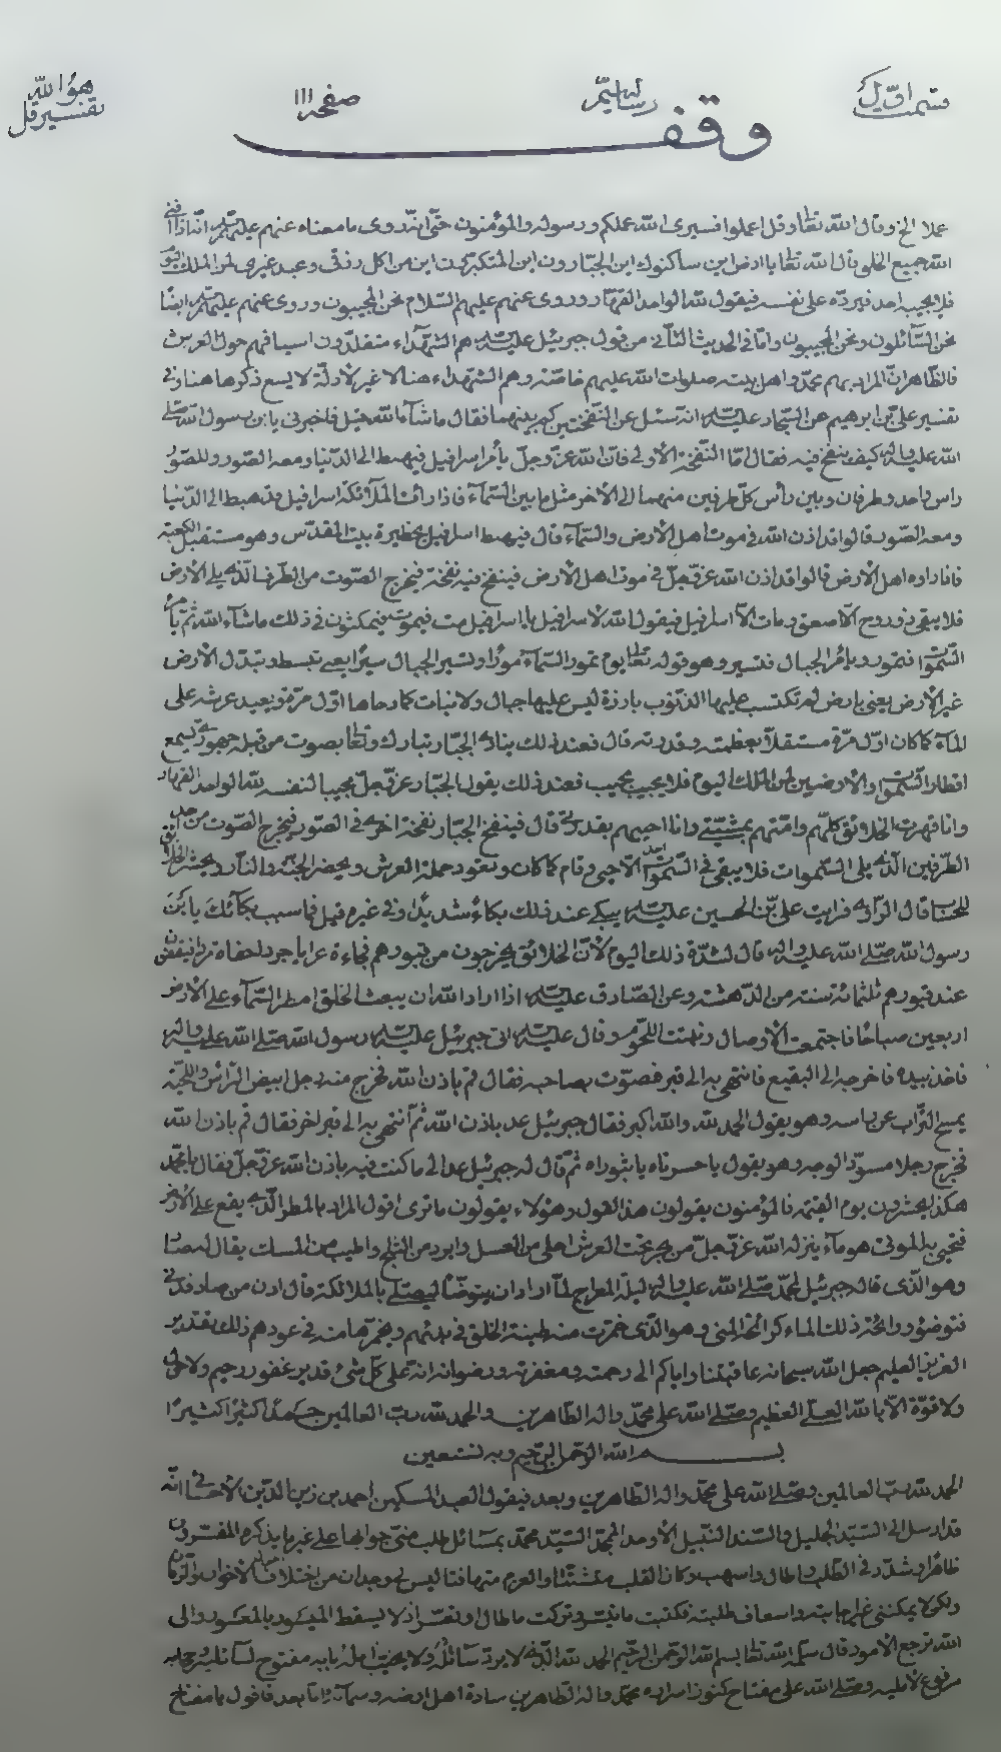 قسمت اوّل
وقف
صفحه ۱۱۱
هو الله
تفسير قل
عملا الخ وقال الله تعالى وقل اعملوا فسيرى الله عملكم ورسوله والمؤمنون حتّى انّه روى ما معناه عنهم عليهم السلام انّه اذا افنى
الله جميع الخلق قال الله تعالى يا ارض اين ساكنوك اين الجبّارون اين المتكبّرون اين من اكل رزقى وعبد غيرى لمن الملك اليوم
فلا يجيبه احد فيردّه على نفسه فيقول لله الواحد القهّار وروى عنهم عليهم السّلام نحن المجيبون وروى عنهم عليهم السلام ايضًا
نحن السّآئلون ونحن المجيبون وامّا فى الحديث الثّانى من قول جبرئيل عليه السلام هم الشّهدآء متقلّدون اسيافهم حول العرش
فالظّاهر انّ المراد بهم محمّد واهل بيته صلوات الله عليهم خاصّة وهم الشّهداء هنا لا غير لادلّة لا يسع ذكرها هنا وفى
تفسير علىّ بن ابرهيم عن السّجاد عليه السلام انّه سئل عن النّفختين كم بينهما فقال ما شآء الله قيل فاخبرنى يا بن رسول الله صلى
الله عليه واله كيف ينفخ فيه فقال امّا النّفخة الاولى فانّ الله عزّ وجلّ يأمر اسرافيل فيهبط الى الدّنيا ومعه الصّور وللصّور
راس واحد وطرفان وبين رأس كلّ طرفين منهما الى الاخر مثل ما بين السّمآء فاذا رأت الملآئكة اسرافيل قد هبط الى الدّنيا
ومعه الصّور قالوا قد اذن الله فى موت اهل الارض والسّمآء قال فيهبط اسرافيل بحظيرة بيت المقدّس وهو مستقبل الكعبة
فاذا راوه اهل الارض قالوا قد اذن الله عزّ وجلّ فى موت اهل الارض فينفخ فيه نفخة فيخرج الصّوت من الطّرف الّذى يلى الارض
فلا يبقى ذو روح الّا صعق ومات الّا اسرافيل فيقول الله لاسرافيل يا اسرافيل مت فيموت فيمكثون فى ذلك ما شآء الله ثمّ يأمر
السّموات فتمور ويأمر الجبال فتسير وهو قوله تعالى يوم تمور السّمآء مورًا وتسير الجبال سيرًا يعنى تبسط وتبدّل الارض
غير الارض يعنى بارض لم تكتسب عليها الذّنوب بارزة ليس عليها جبال ولا نبات كما دحاها اوّل مرّة ويعيد عرشه على
المآء كما كان اوّل مرّة مستقلاّ بعظمته وقدرته قال فعند ذلك ينادى الجبّار تبارك وتعالى بصوت من قبله جهورى يسمع
اقطار السّموات والارضين لمن الملك اليوم فلا يجيبه مجيب فعند ذلك يقول الجبّار عزّ وجلّ مجيبا لنفسه لله الواحد القهار
وانا قهرت الخلائق كلّهم وامتّهم بمشيّتى وانا احييهم بقدرتى قال فينفخ الجبّار نفخة اخرى فى الصّور فيخرج الصّوت من
الطّرفين الّذى يلى السّموات فلا يبقى فى السّموات احد الّا حيى وقام كما كان وتعود حملة العرش ويحضر الجنّة والنّار ويحشر الخلائق
للحساب قال الرّاوى فرايت علىّ بن الحسين عليه السلام يبكى عند ذلك بكاء شديدًا وفى غيره قيل فما سبب بكائك يابن
رسول الله صلى الله عليه واله قال لشدّة ذلك اليوم لانّ الخلائق يخرجون من قبورهم فجاءة عراياجردا حفاة
عند قبورهم ثلثمائة سنة من الدّهشة وعن الصّادق عليه السلام اذا اراد الله ان يبعث الخلق امطر السّمآء على الارض
اربعين صباحًا فاجتمعت الاوصال ونبتت اللّحوم وقال عليه السلام اتى جبرئيل عليه السلام رسول الله صلى الله عليه واله
فاخذ بيده فاخرجه الى البقيع فانتهى به الى قبر فصوّت بصاحبه فقال قم باذن الله فخرج منه رجل ابيض الرّأس واللّحية
يمسح التّراب عن راسه وهو يقول الحمد لله والله اكبر فقال جبرئيل عد باذن الله ثمّ انتهى به الى قبر اخر فقال قم باذن الله
فخرج رجلا مسوّد الوجه وهو يقول يا حسرتاه يا ثبوراه ثمّ قال له جبرئيل عد الى ما كنت فيه باذن الله عزّ وجلّ فقال يا محمّد
هكذا يحشرون يوم القيمة فالمؤمنون يقولون هذا القول وهؤلاء يقولون ما ترى اقول المراد بالمطر الّذى يقع على الارض
فتحيى به الموتى هو مآء ينزله الله عزّ وجلّ من بحر تحت العرش احلى من العسل وابرد من الثلج واطيب من المسك يقال له صاد
وهو الّذى قال جبرئيل لمحمّد صلى الله عليه واله ليلة المعراج لمّا اراد ان يتوضّأ ليصلّى بالملائكة قال ادن من صاد
فتوضؤ ورائحة ذلك المآء كرائحة المنى وهو الّذى خمّرت منه طينة الخلق فى بدئهم ويخمرها منه فى عودهم ذلك بتقدير
العزيز العليم جعل الله سبحانه عاقبتنا واياكم الى رحمته ومغفرته ورضوانه انّه على كلّ شىء قدير غفور رحيم ولا حول
ولا قوّة الّا بالله العلىّ العظيم وصلّى الله على محمّد واله الطّاهرين والحمد لله ربّ العالمين حمدًا كثيرًا كثيرًا
بسم الله الرّحمن الرّحيم وبه نستعين
الحمد لله ربّ العالمين وصلّى الله على محمّد واله الطّاهرين وبعد فيقول العبد المسكين احمد بن زين الدّين الاحسائى انّه
قد ارسل الىّ السّيّد الجليل والسّند النّبيل الاوحد الممجّد السّيّد محمّد بمسائل طلب منّى جوابها على غير ما يذكره المفسّرون
ظاهرا وشدّد فى الطّلب واطال واسهب وكان القلب متشتّتا والعزم منهافتا ليس لى وجدان من اختلاف الاخوان
ولكن لا يمكننى غير اجابته واسعاف طلبته فكتبت ما تيسّر وتركت ما طال او تعسّر اذ لا يسقط الميسور بالمعسور والى
الله ترجع الامور قال سلّمه الله تعالى بسم الله الرّحمن الرّحيم الحمد لله الّذى لا يردّ سآئله ولا يخيب امله بابه مفتوح لسآئليه وحجابه
مرفوع لامليه وصلّى الله على مفتاح كنوز اسراره محمّد واله الطّاهرين سادة اهل ارضه وسمآئه امّا بعد فاقول يا مفتاح